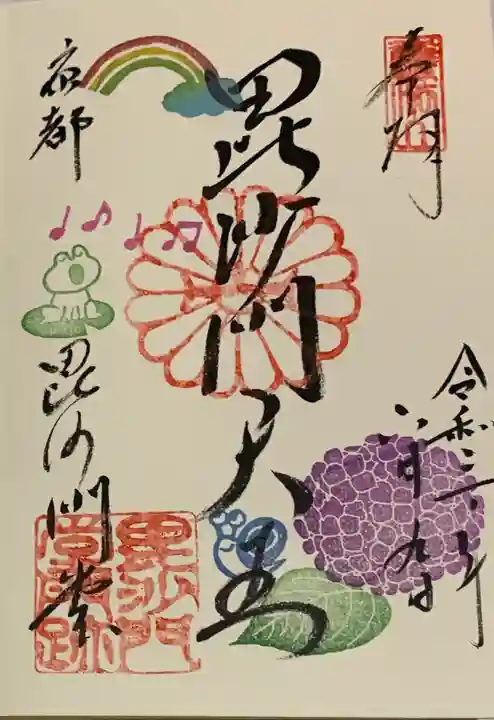 奉拝
令和二年
六月九日
毘沙門天王
京都
毘沙門堂
毘沙門
堂門跡